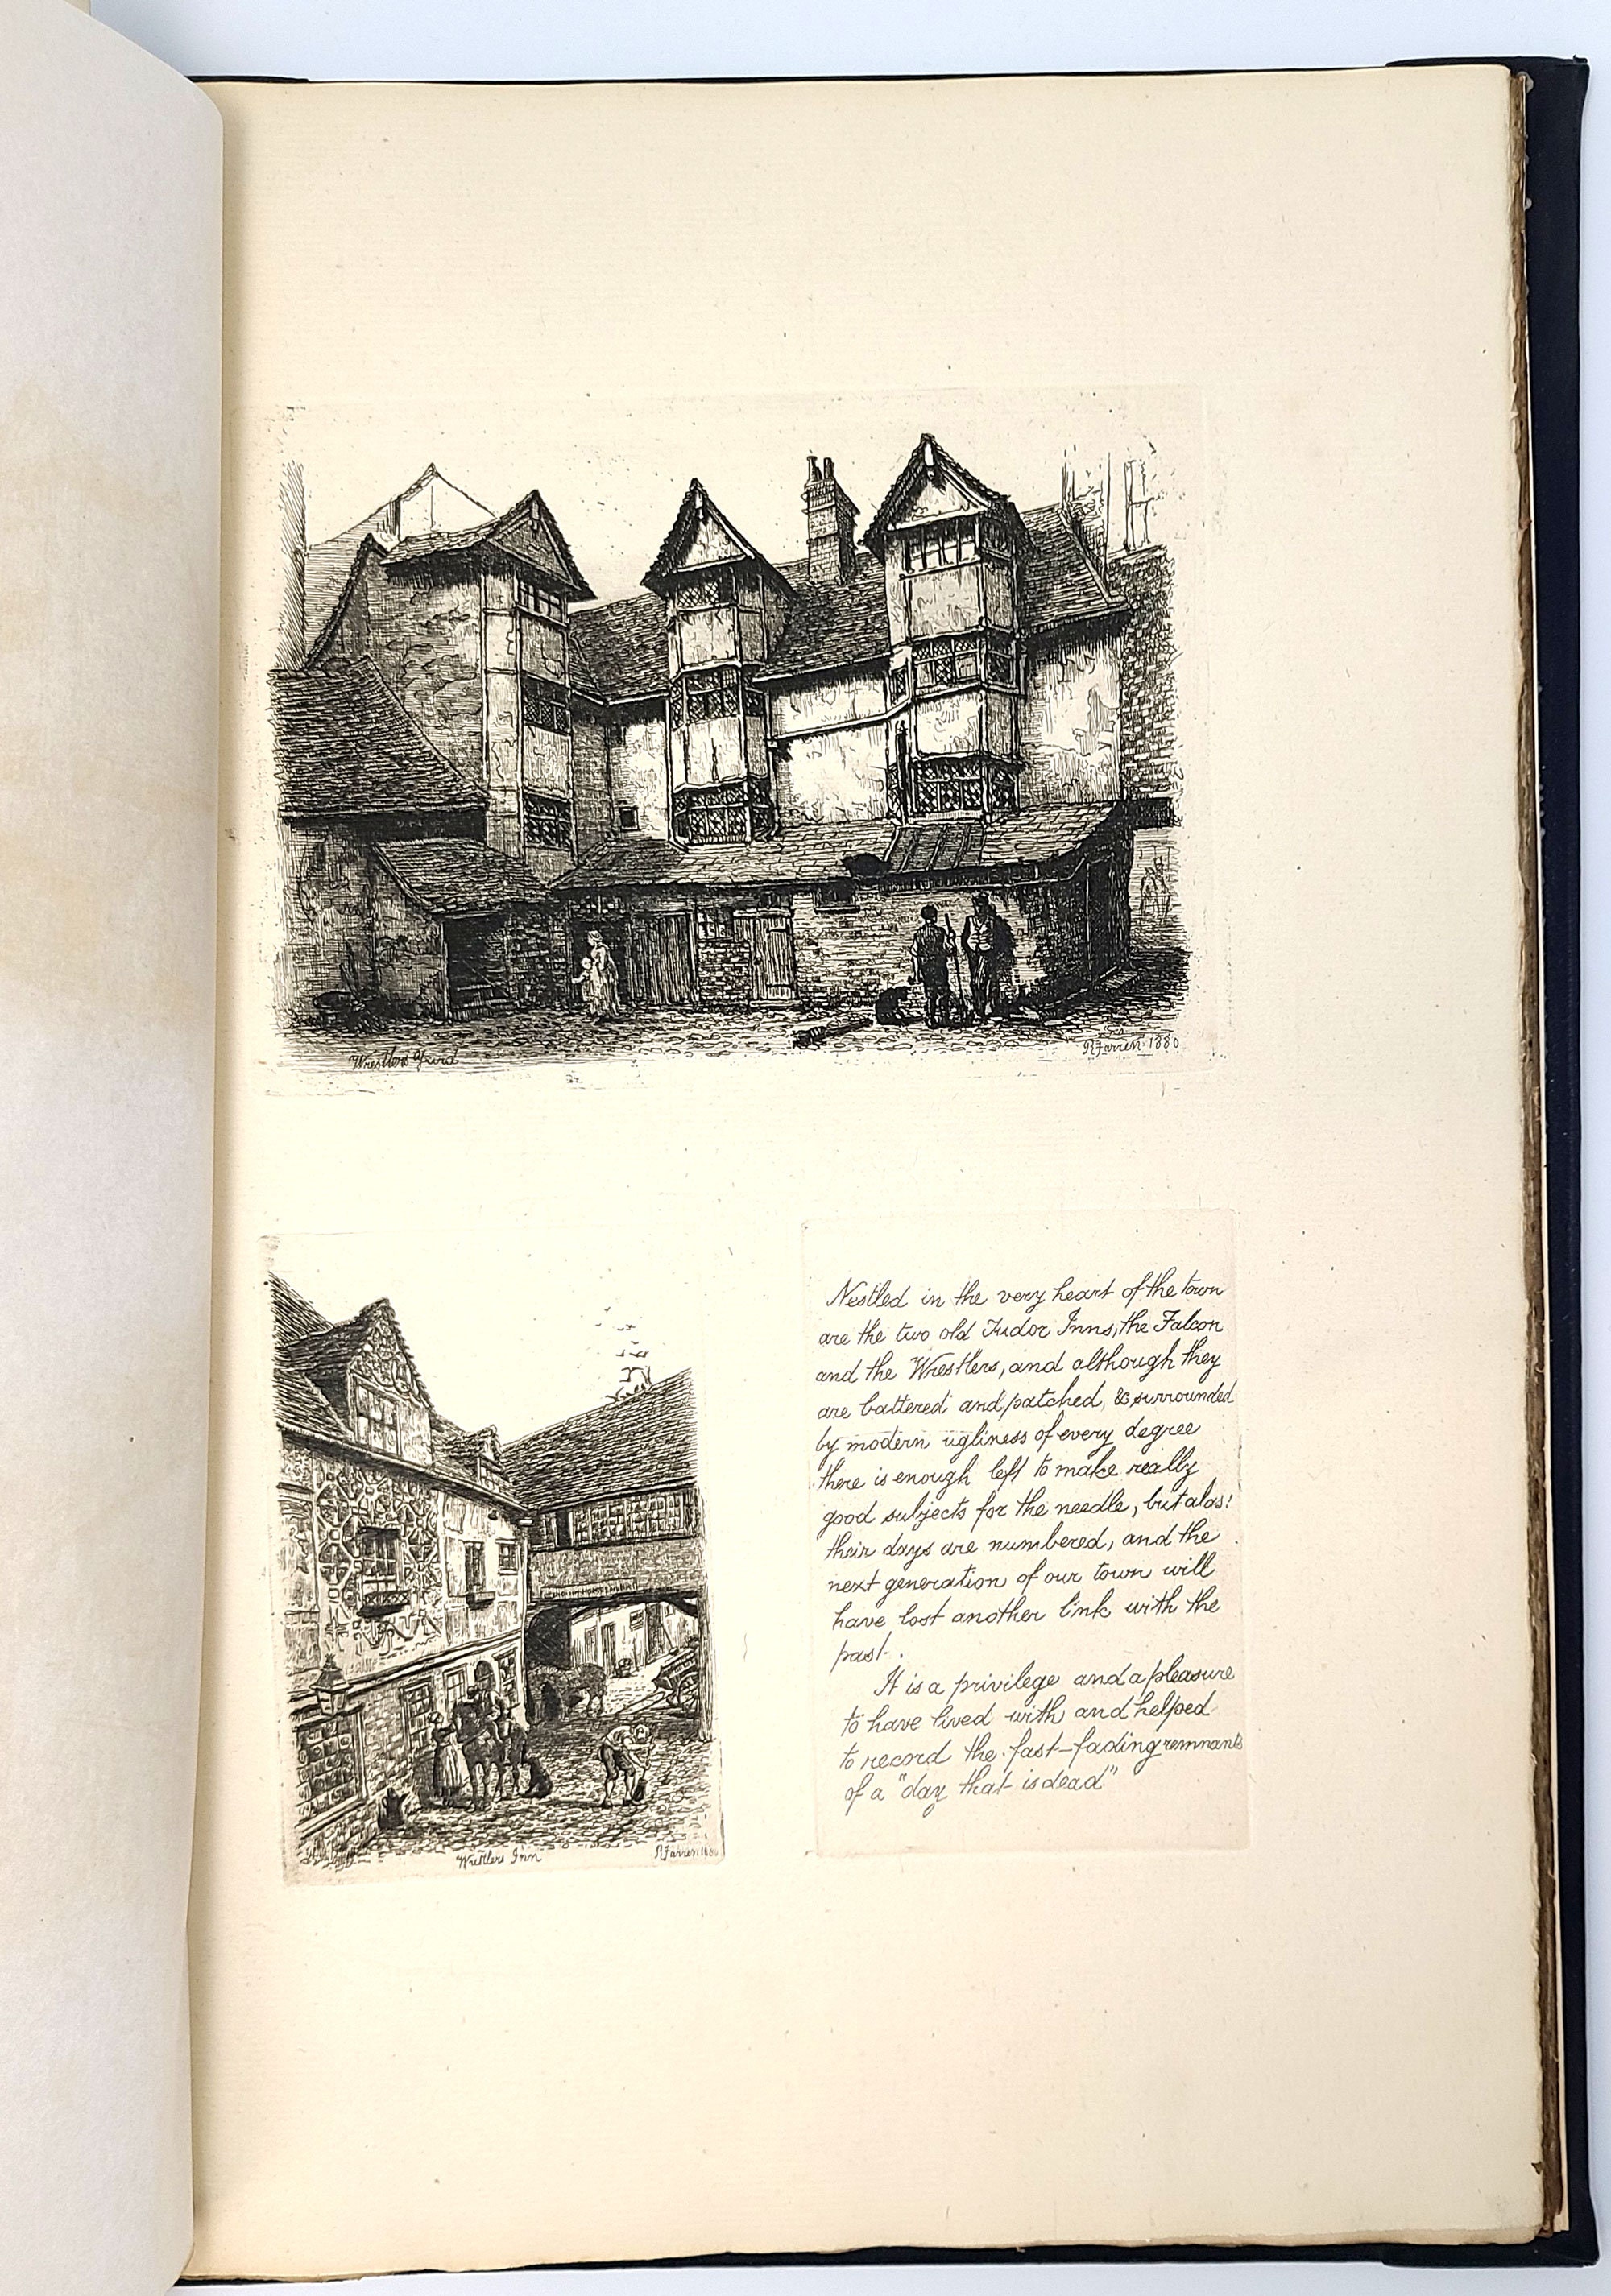 Wrestlers Yard
R Farren 1880
Nestled in the very heart of the town
are the two old Tudor Inns, the Falcon
and the Wrestlers, and although they
are battered and patched, & surrounded
by modern ugliness of every degree
there is enough left to make really
good subjects for the needle, but alas!
their days are numbered, and the
next generation of our town will
have lost another link with the
past.
It is a privilege and a pleasure
to have lived with and helped
to record the fast-fading remnants
of a "day that is dead"
Wrestlers Inn
R Farren 1880